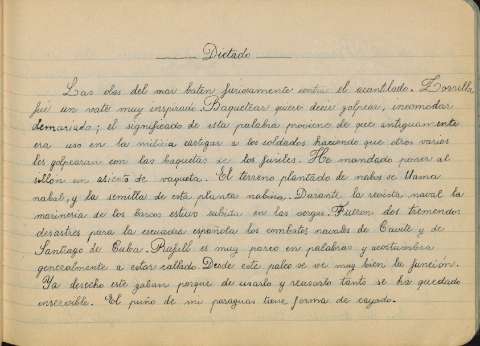 Dictado
Las olas del mar baten furiosamente contra el acantilado. Zorrilla
fué un vate muy inspirado. Baquetear quiere decir golpear, incomodar
demasiado; el significado de esta palabra proviene de que antiguamente
era uso en la milicia castigar a los soldados haciendo que otros varios
les golpearan con las baquetas de los fusiles. He mandado poner al
sillón un asiento de vaqueta. El terreno plantado de nabos se llama
nabal, y la semilla de esta planta nabina. Durante la revista naval la
marinería de los barcos estuvo subida en las vergas. Fueron dos tremendos
desastres para la escuadra española los combates navales de Cavite y de
Santiago de Cuba. Rafael es muy parco en palabras y acostumbra
generalmente a estar callado. Desde este palco se ve muy bien la función.
Ya desecho este gabán porque de usarlo y reusarlo tanto se ha quedado
inservible. El puño de mi paraguas tiene forma de cayado.